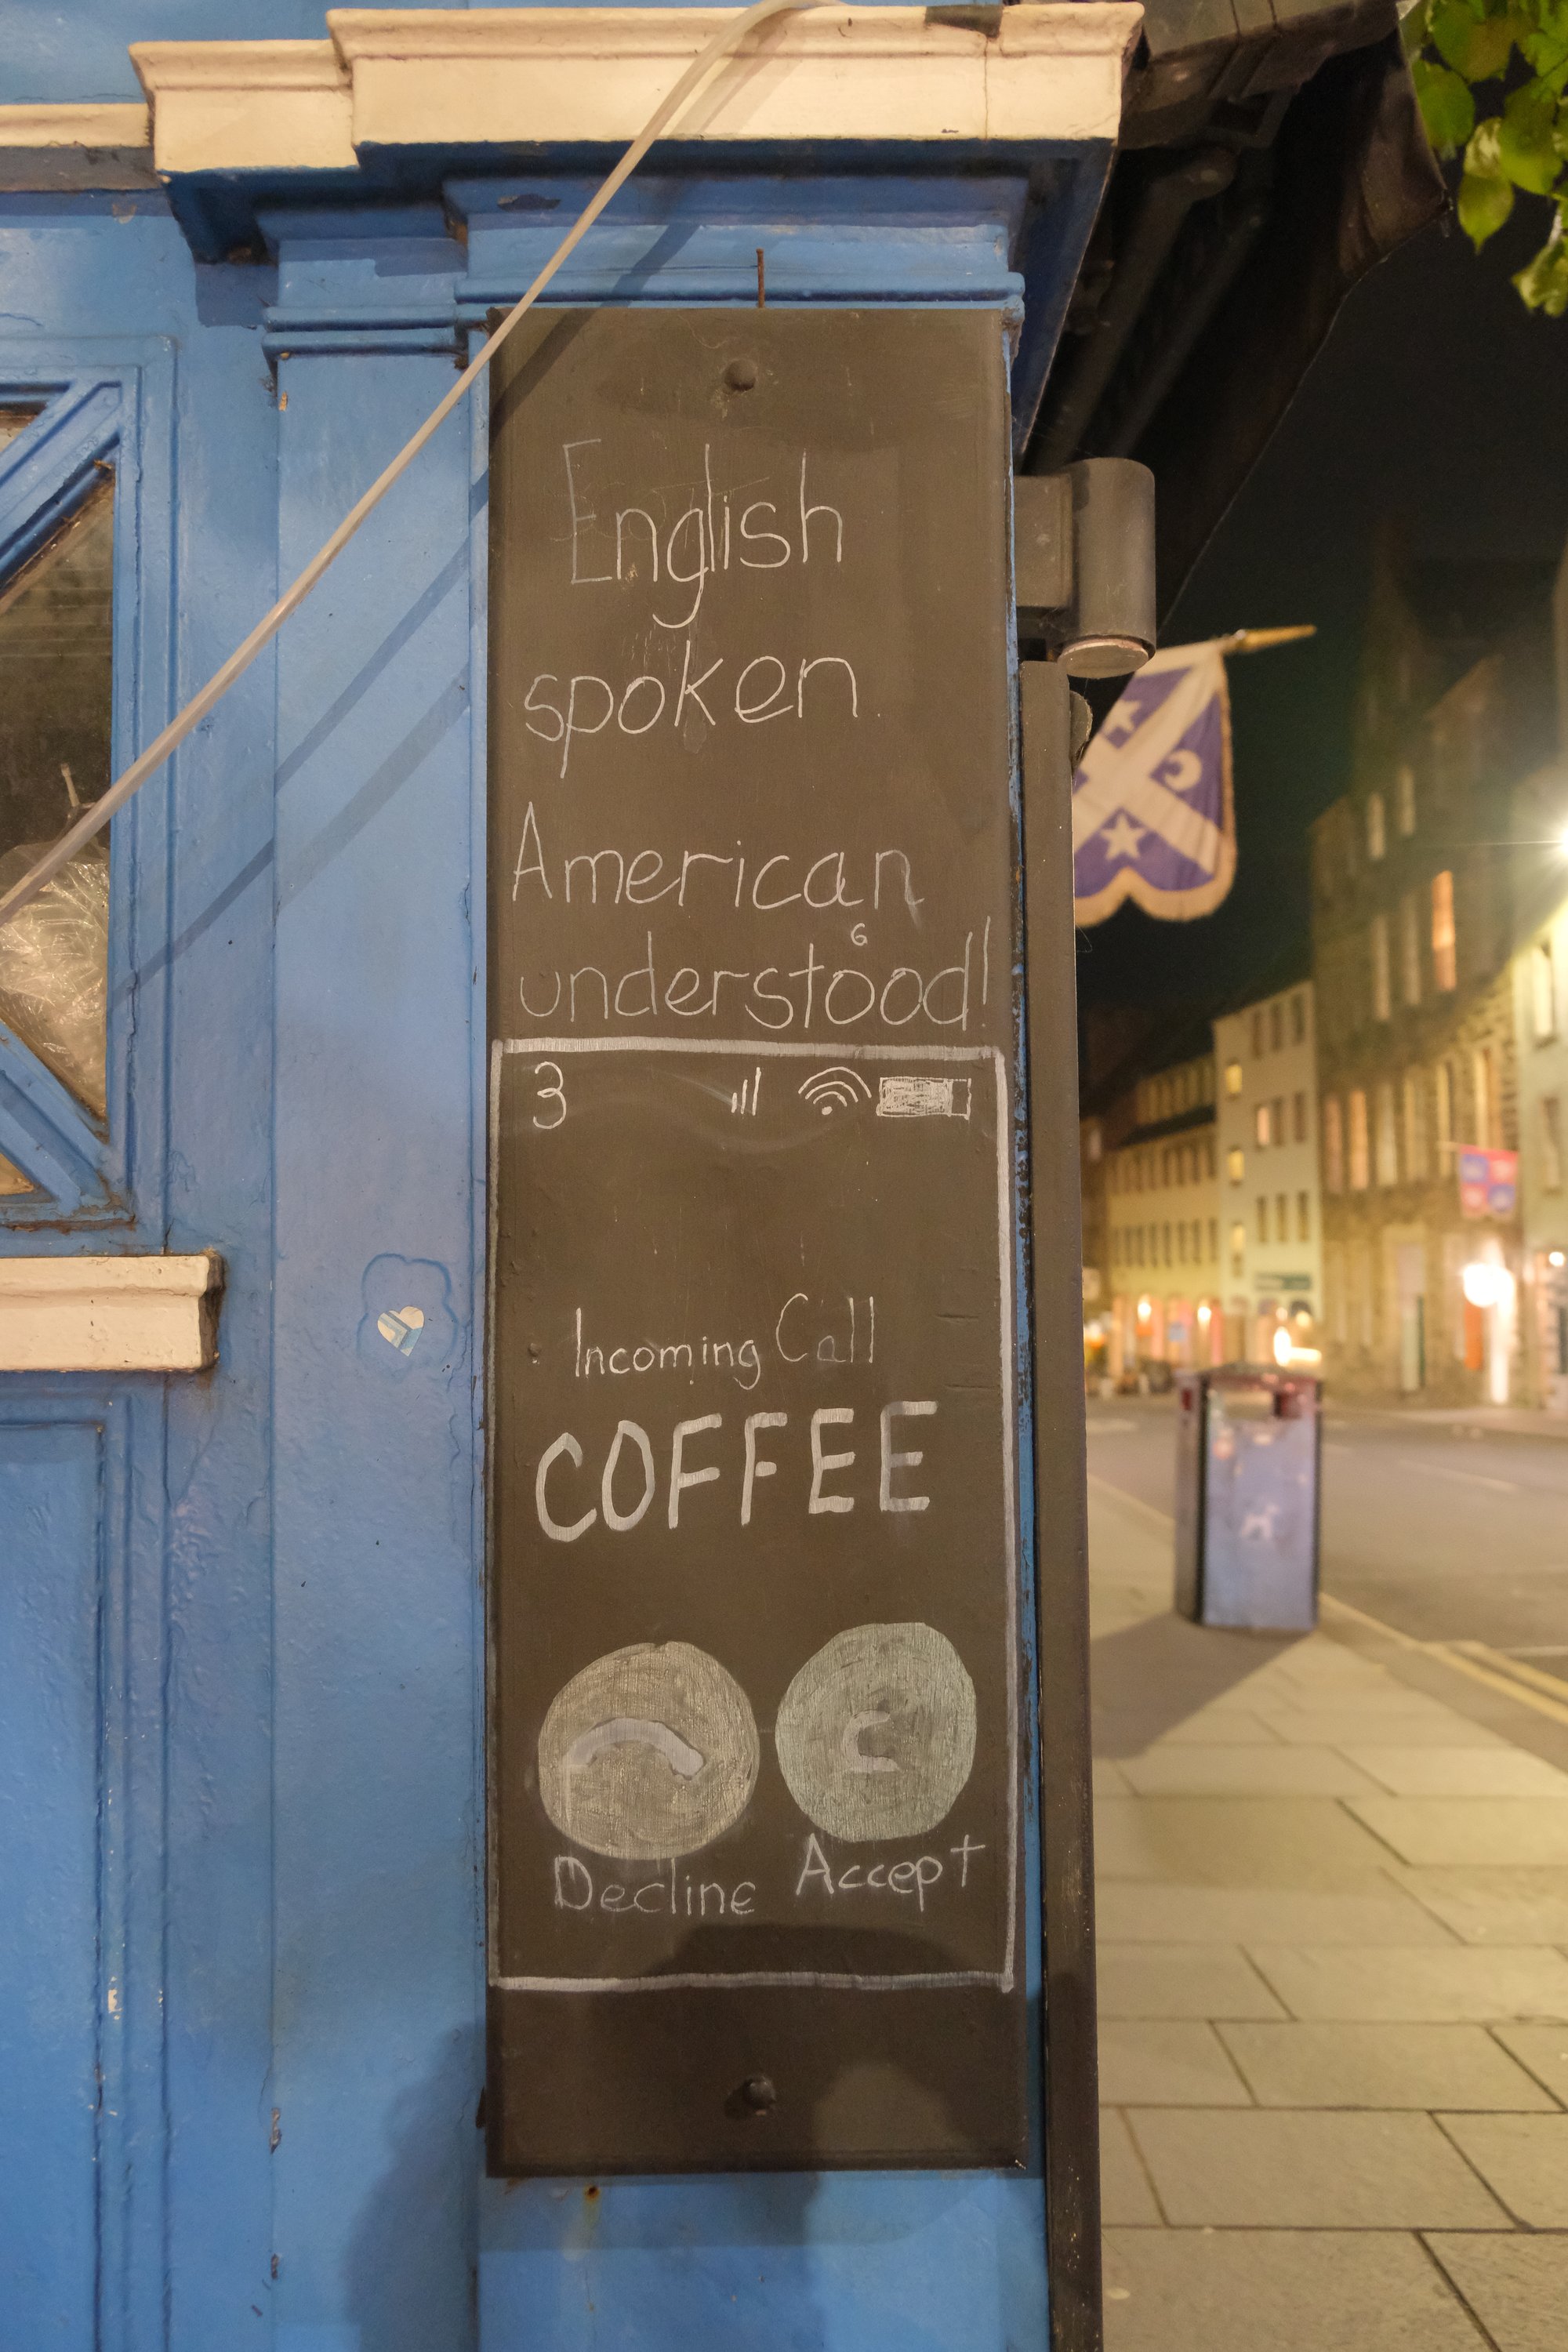 English
spoken
American
6
understood!
3
Incoming Call
COFFEE
Decline Accept